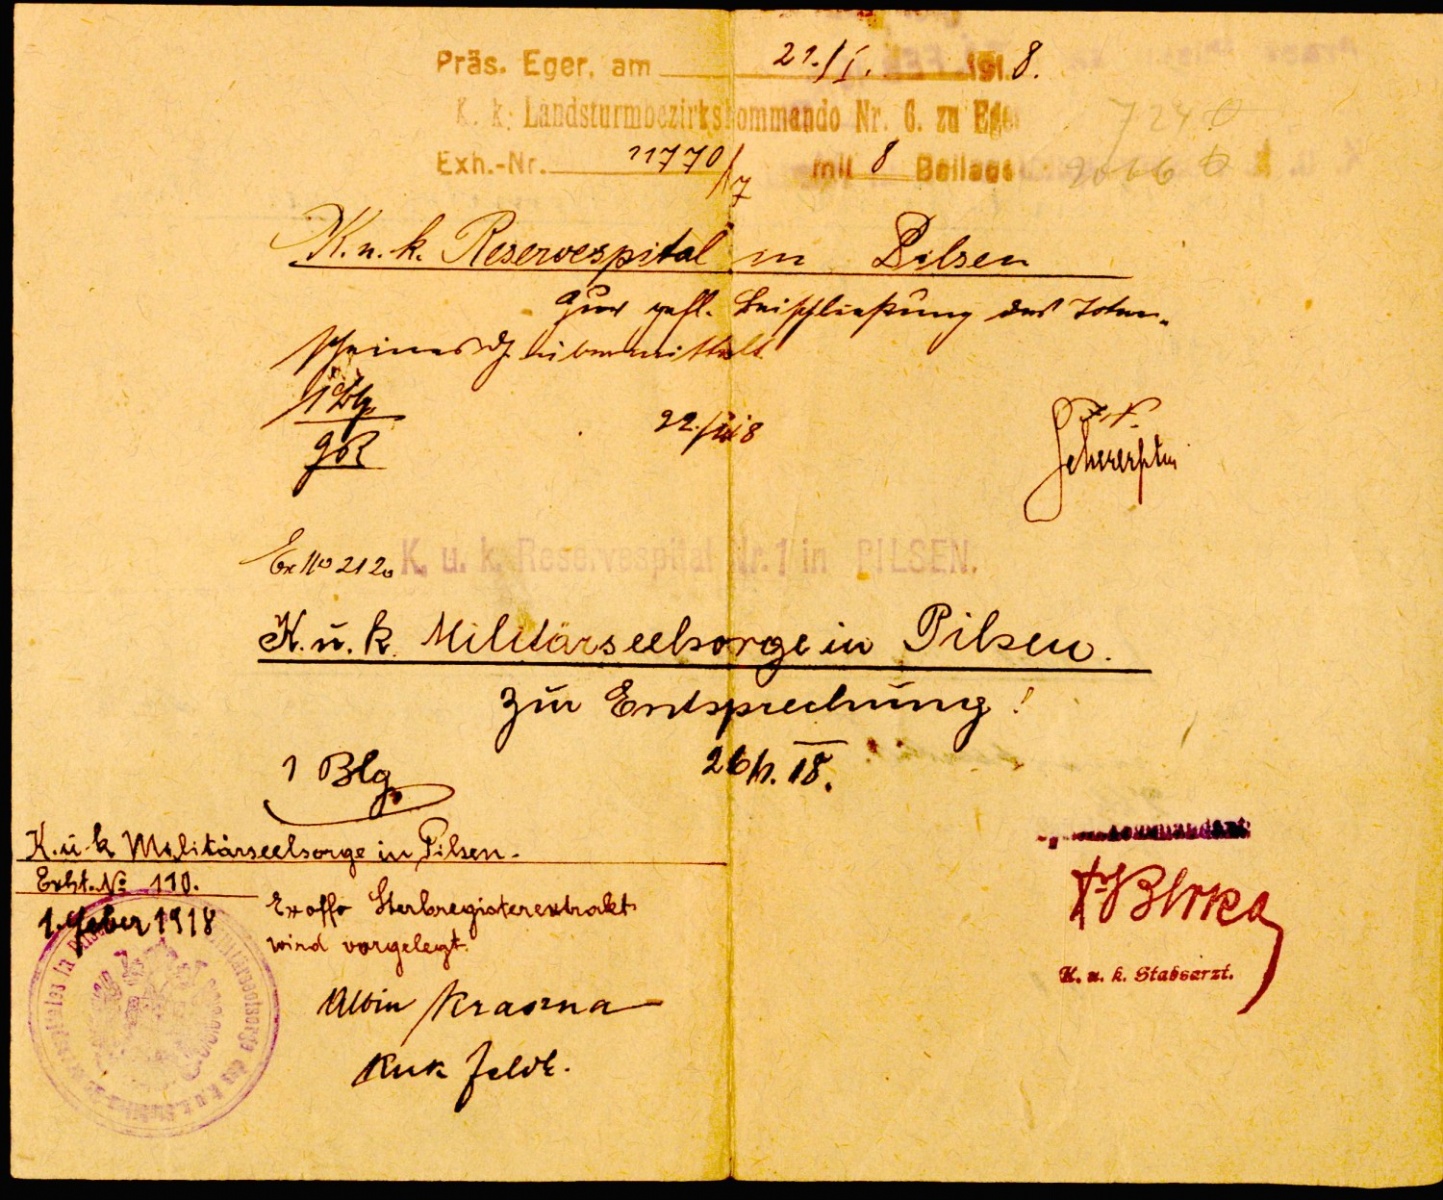 Präs. Eger, am 21./I. 1918.
K. k. Landsturmbezirkskommando Nr. 6. zu Eger
7240
Exh.-Nr. 11770/7 mit 8 Beilagen
2066
K. u. k. Reservespital in Pilsen
zur gefl. Beischließung des Toten-
scheines übermittelt
1 Blg.
22./I 18
Ex No 2120 K. u. k. Reservespital Nr. 1 in PILSEN.
K. u. k. Militärseelsorge in Pilsen.
zur Entsprechung!
1 Blg.
26/1. 18.
K. u. k Militärseelsorge in Pilsen.
Exht. No 110.
1. Feber 1918
Ex offo Sterbregisterextrakt
wird vorgelegt.
Albin Krasna
KuK Feldk.
K. u. k. Stabsarzt.